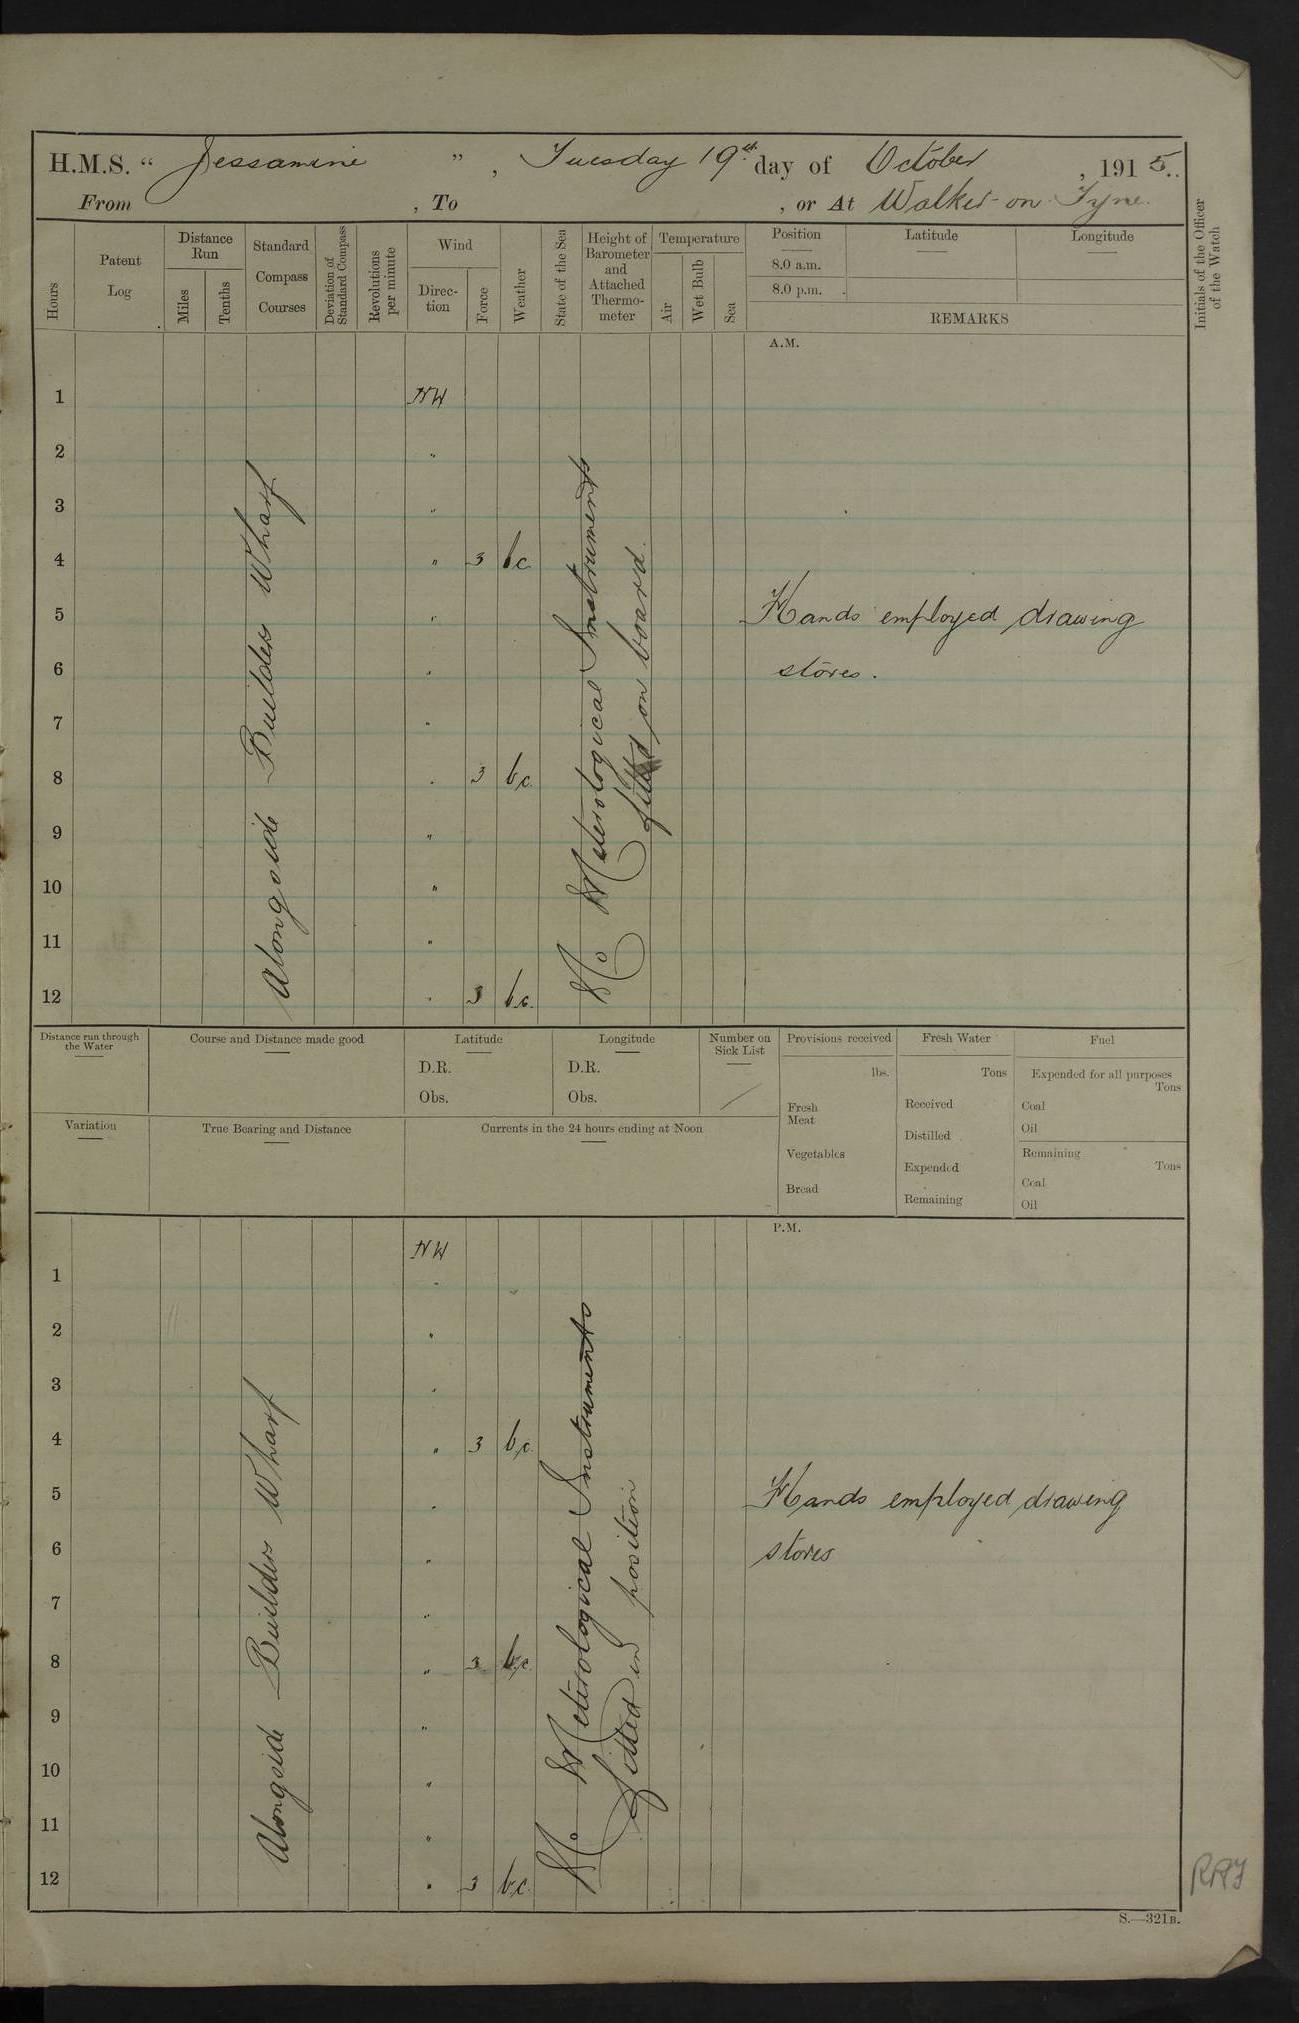 H.M.S. “ Jessamine ”, Tuesday 19th day of October, 1915.
From , To , or At Walker-on-Tyne.
Hours
Patent Log
Distance Run
Miles
Tenths
Standard Compass Courses
Deviation of Standard Compass
Revolutions per minute
Wind
Direction
Force
Weather
State of the Sea
Height of Barometer and Attached Thermometer
Temperature
Air
Wet Bulb
Sea
Position
8.0 a.m.
8.0 p.m.
Latitude
Longitude
REMARKS
Initials of the Officer of the Watch
A.M.
1 NW
2 "
3 "
4 " 3 bc
5 " Hands employed drawing
6 " stores.
7 "
8 " 3 bc.
9 "
10 "
11 "
12 " 3 b.c.
Alongside Builders Wharf
No Meterological Instruments
fitted on board.
Distance run through the Water
Course and Distance made good
Latitude
D.R.
Obs.
Longitude
D.R.
Obs.
Number on Sick List
/
Provisions received
lbs.
Fresh Meat
Vegetables
Bread
Fresh Water
Tons
Received
Distilled
Expended
Remaining
Fuel
Expended for all purposes
Tons
Coal
Oil
Remaining
Tons
Coal
Oil
Variation
True Bearing and Distance
Currents in the 24 hours ending at Noon
P.M.
NW
1 "
2 "
3 "
4 " 3 b.c.
5 " Hands employed drawing
6 " stores
7 "
8 " 3 b.c.
9 "
10 "
11 "
12 " 3 b.c.
Alongside Builders Wharf
No Meterological Instruments
fitted in position
S.—321B.